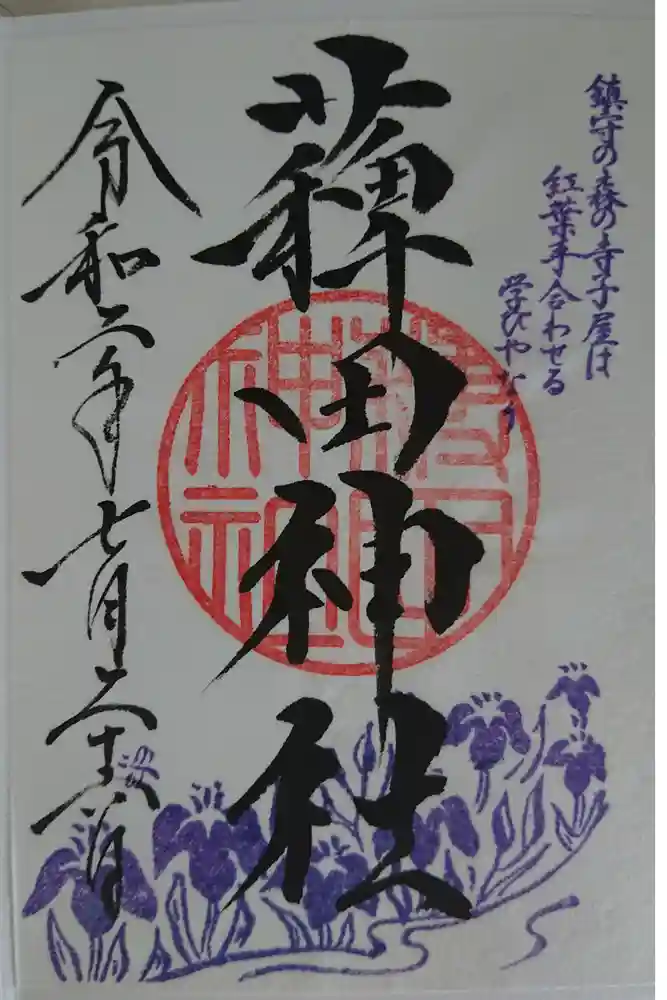 鎮守の森の寺子屋は
紅葉手合わせる
学びやなり
薭田神社
令和二年七月二十六日